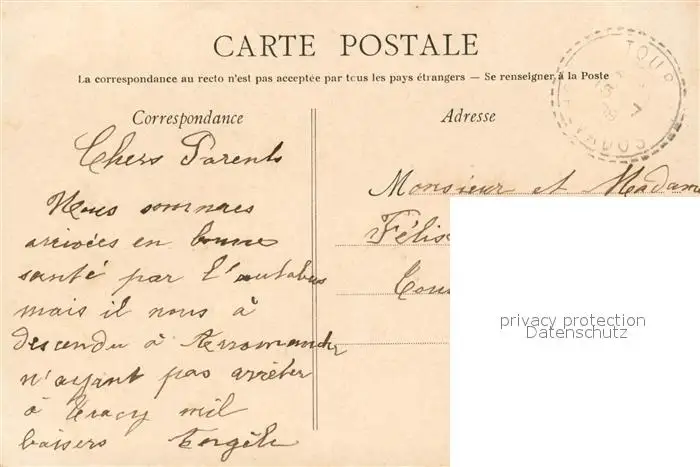 CARTE POSTALE
La correspondance au recto n'est pas acceptée par tous les pays étrangers — Se renseigner à la Poste
Correspondance
Chers Parents
Nous sommes
arrivées en bonne
santé par l'autobus
mais il nous à
descendu à Arromanche
n'ayant pas arrêter
à Tracy mil
baisers
Adresse
Monsieur et Madam
Félix
privacy protection
Datenschutz